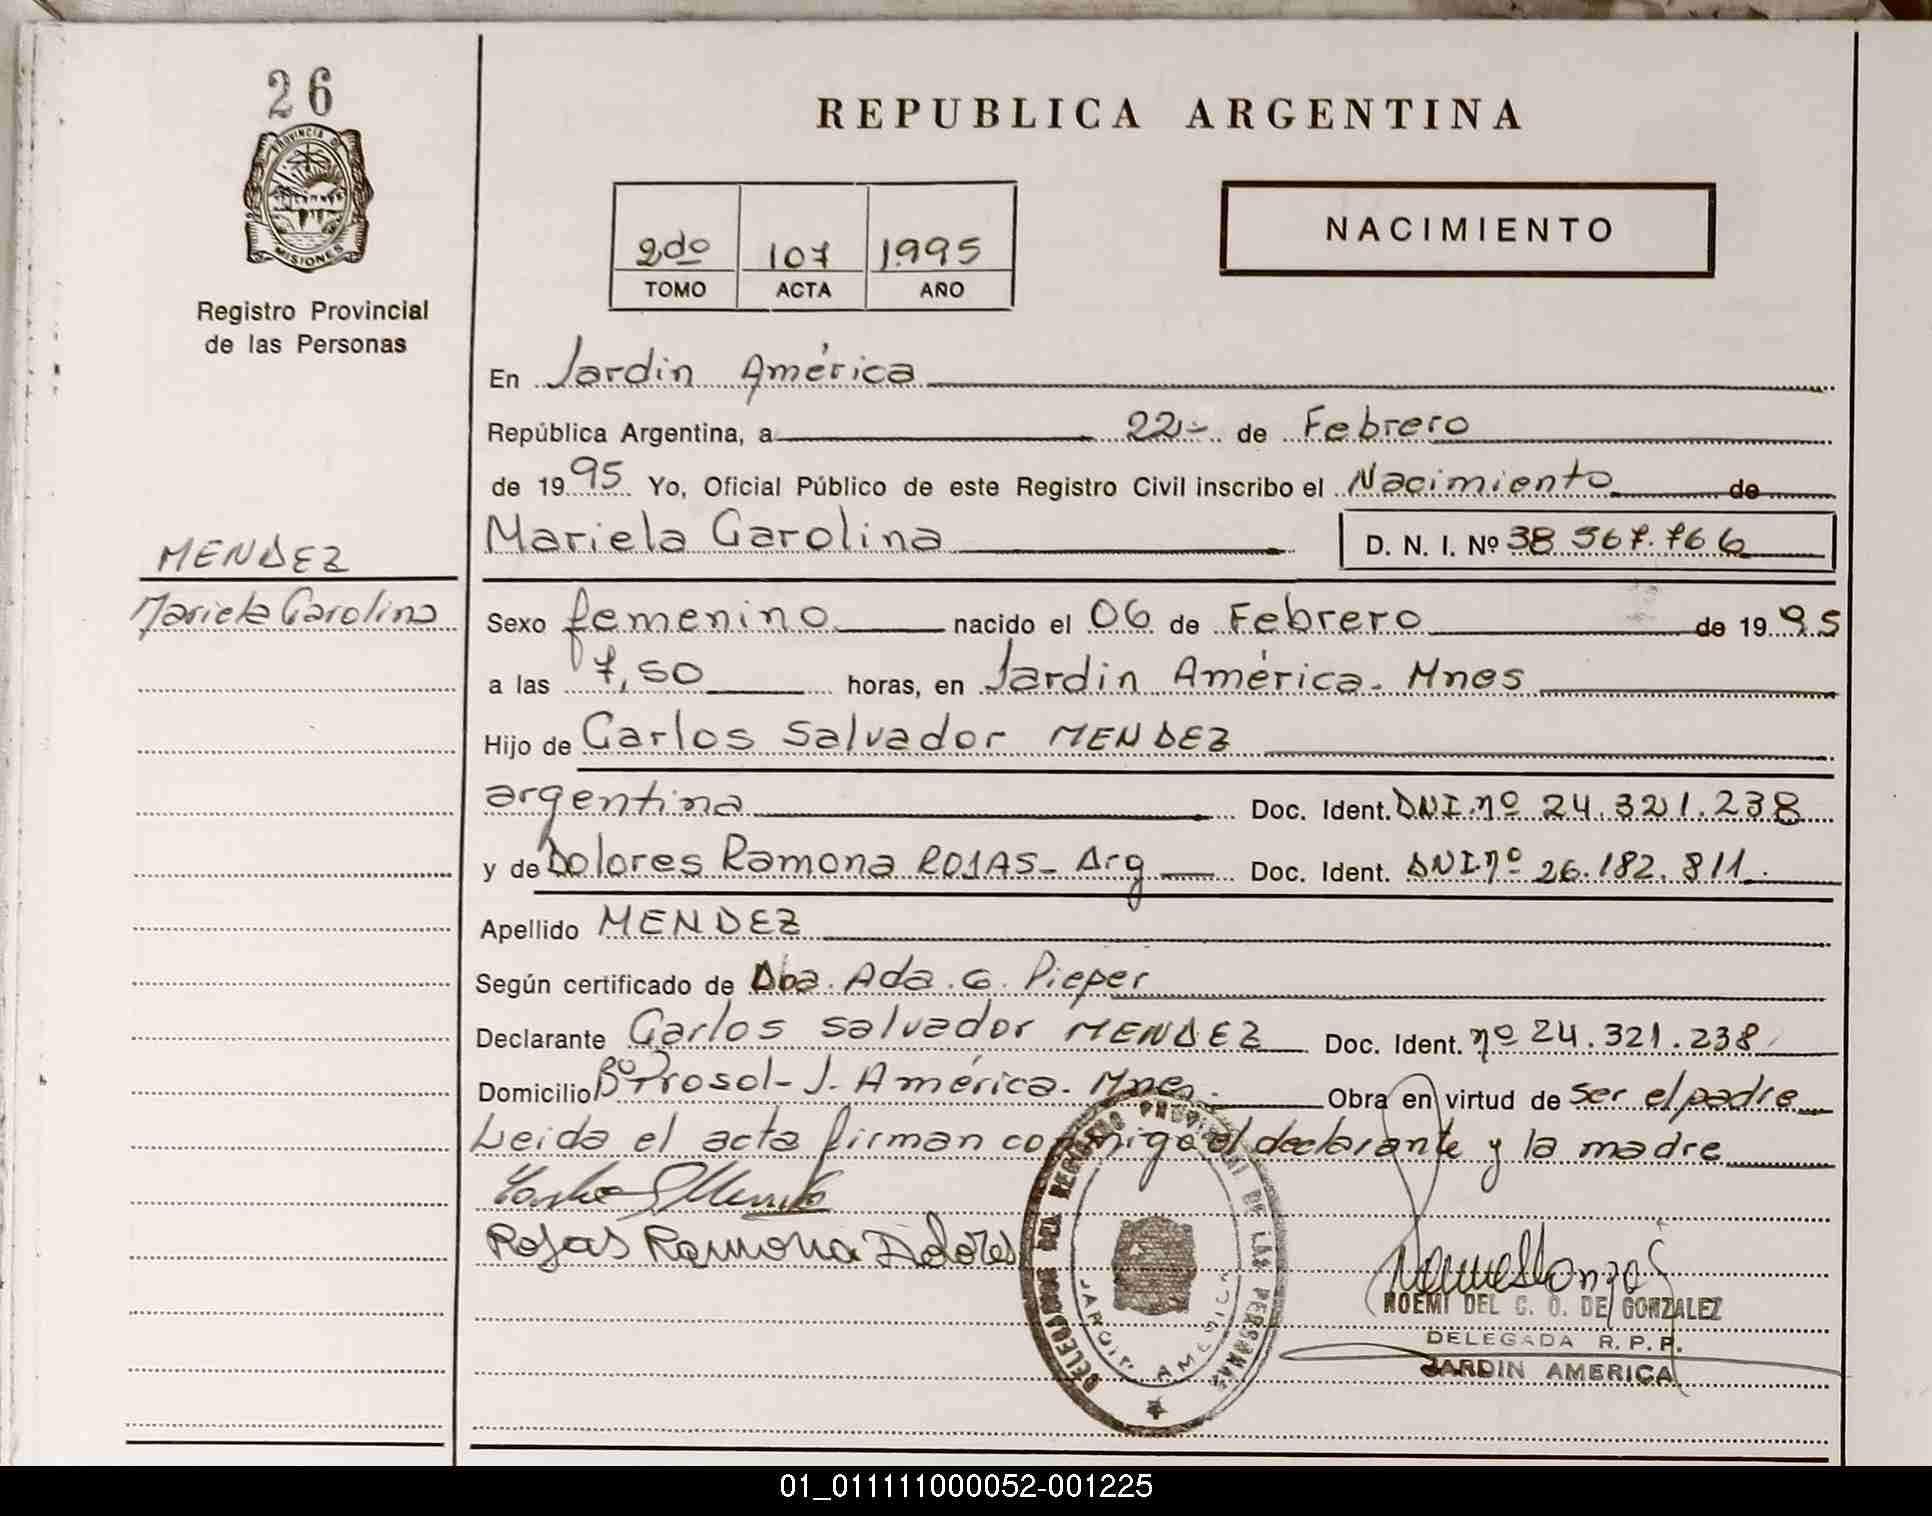 26
PROVINCIA DE
MISIONES
Registro Provincial
de las Personas
MENDEZ
Mariela Carolina
REPUBLICA ARGENTINA
2do 107 1995
TOMO ACTA AÑO
NACIMIENTO
En Jardin América
República Argentina, a 22 - de Febrero
de 1995 Yo, Oficial Público de este Registro Civil inscribo el Nacimiento de
Mariela Carolina D. N. I. Nº 38 567.766
Sexo femenino nacido el 06 de Febrero de 1995
a las 7,50 horas, en Jardin América. Mnes
Hijo de Carlos Salvador MENDEZ
argentina Doc. Ident. DNI.nº 24.321.238
y de Dolores Ramona ROJAS - Arg Doc. Ident. DNI nº 26.182.811.
Apellido MENDEZ
Según certificado de Dba. Ada. G. Pieper
Declarante Carlos Salvador MENDEZ Doc. Ident. nº 24.321.238
Domicilio Bº Prosol - J. América. Mnes. Obra en virtud de ser el padre
Leida el acta firman conmigo el declarante y la madre
Rojas Ramona Dolores
DELEGACION DEL REGISTRO PROVINCIAL DE LAS PERSONAS
JARDIN AMERICA
NOEMI DEL C. O. DE GONZALEZ
DELEGADA R. P. P.
JARDIN AMERICA
01_011111000052-001225